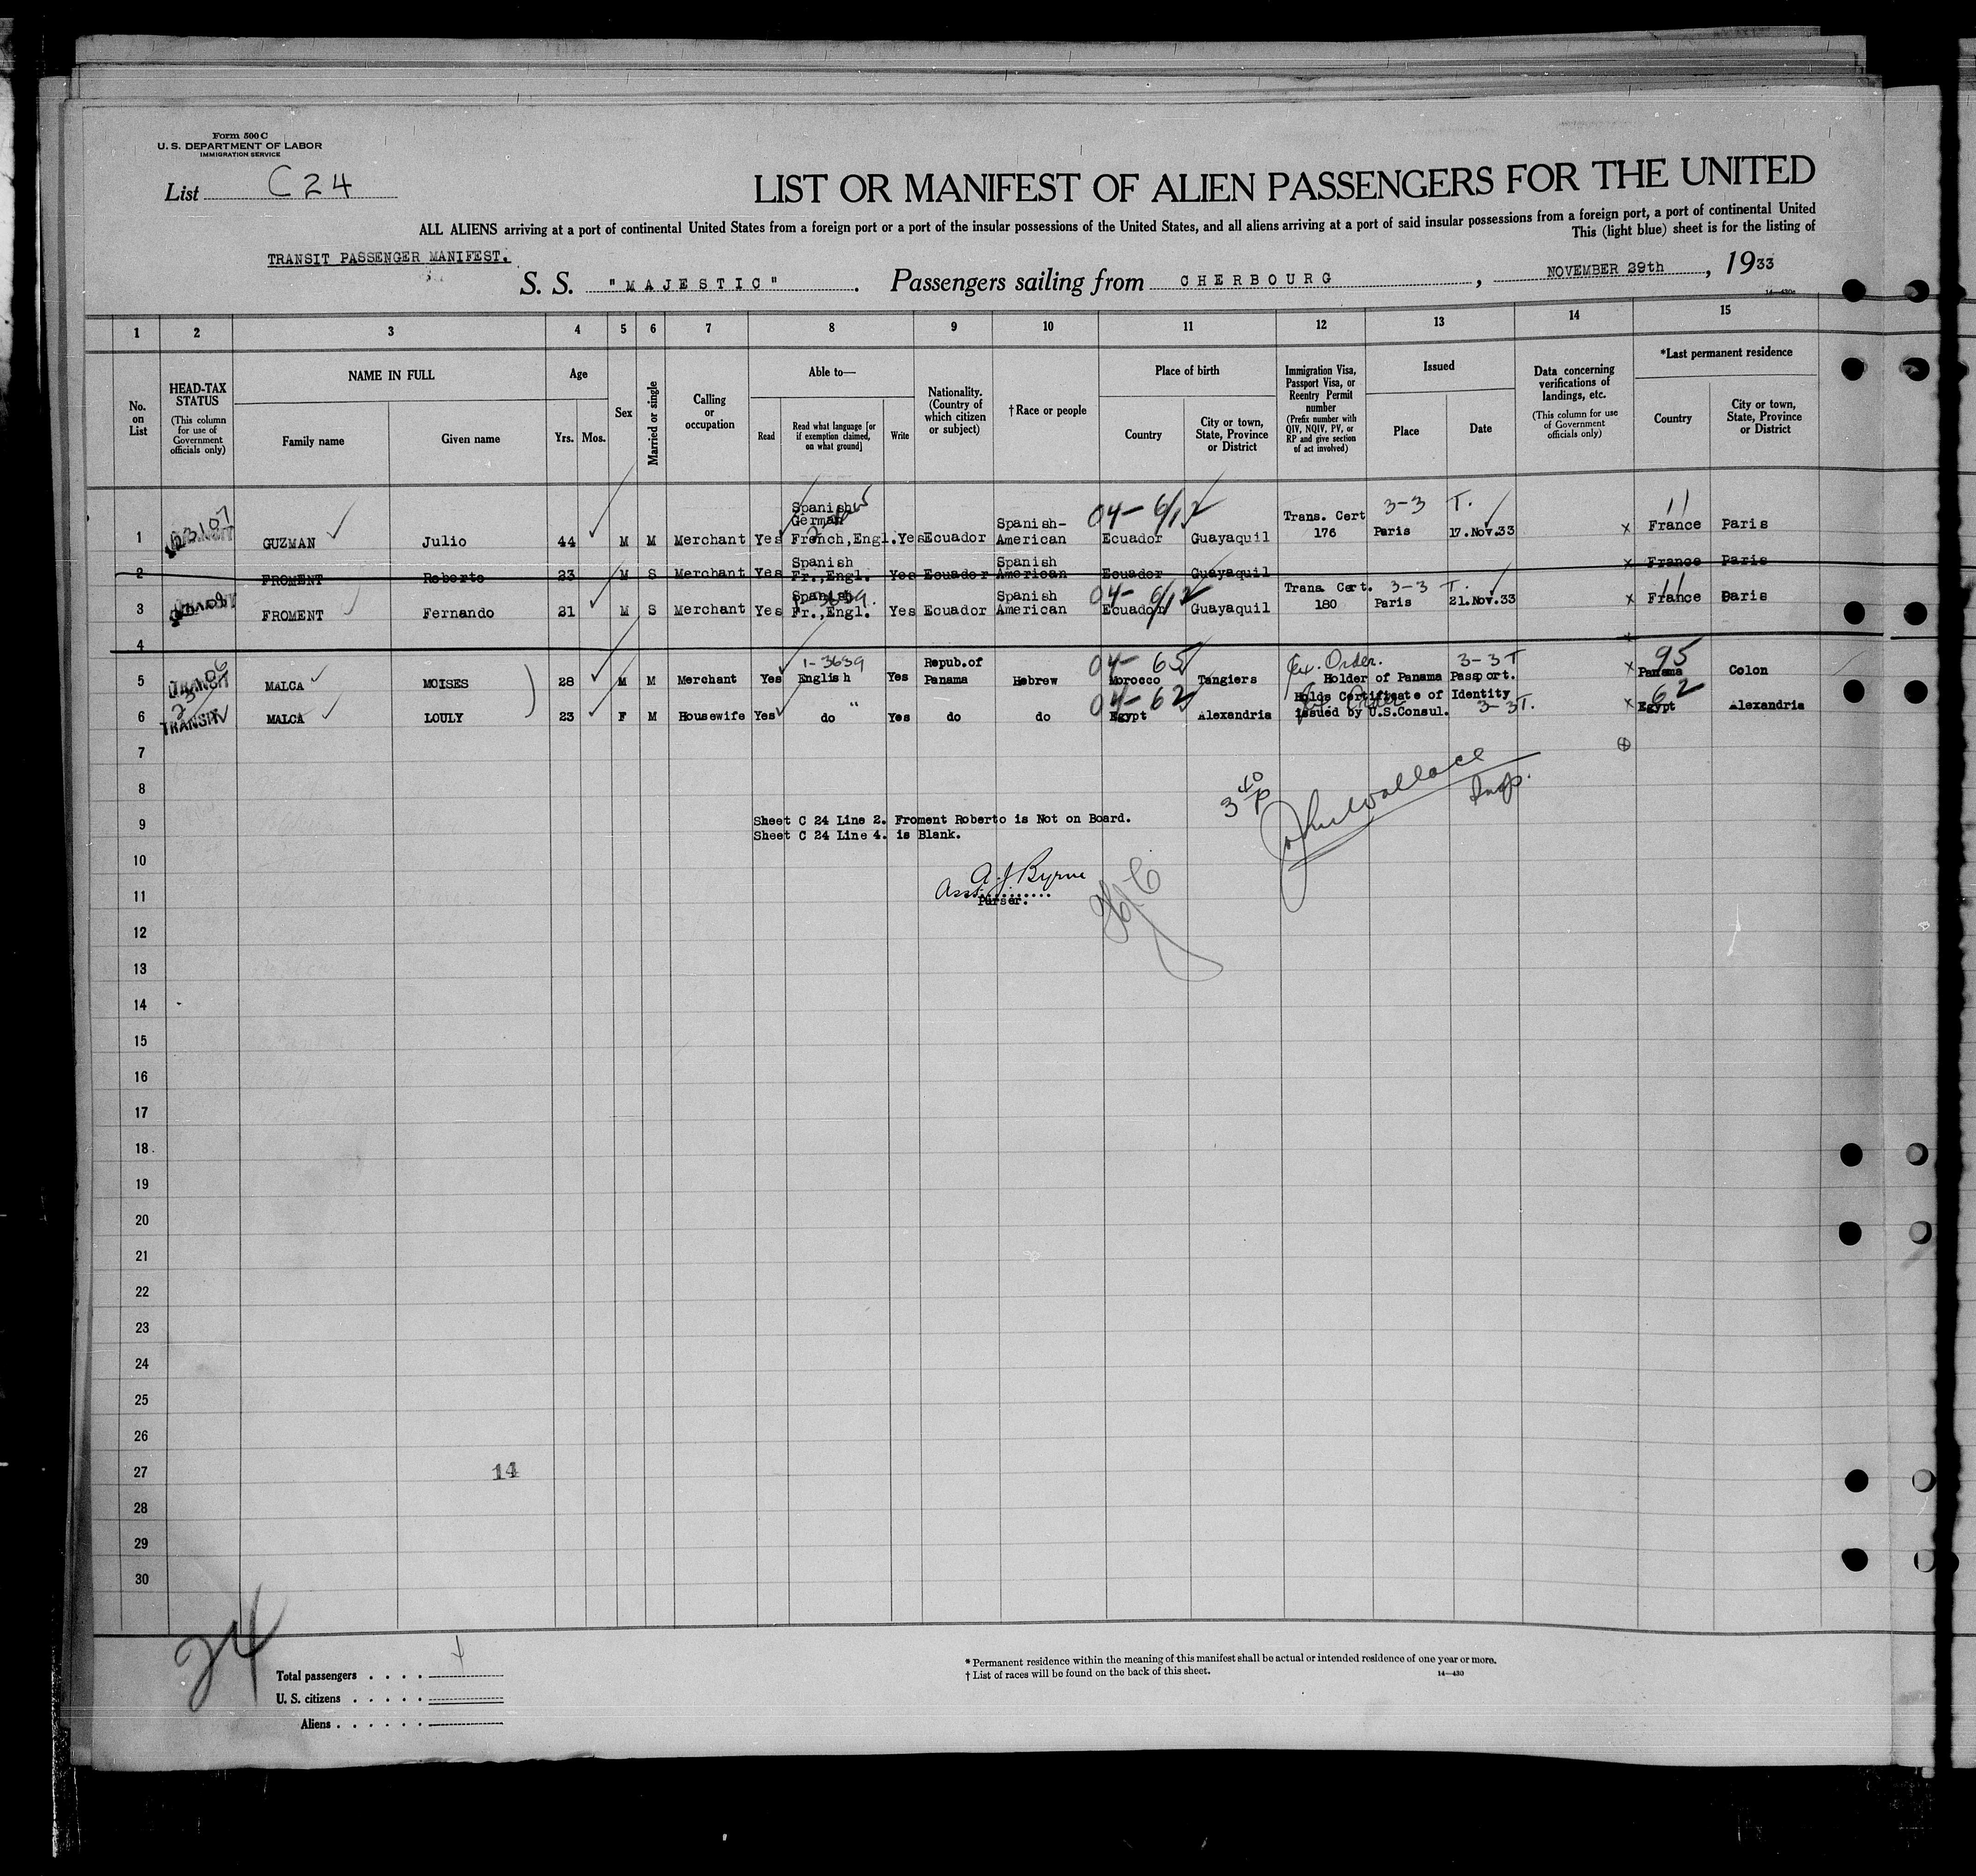 Form 500 C
U. S. DEPARTMENT OF LABOR
IMMIGRATION SERVICE
List C 24
LIST OR MANIFEST OF ALIEN PASSENGERS FOR THE UNITED
ALL ALIENS arriving at a port of continental United States from a foreign port or a port of the insular possessions of the United States, and all aliens arriving at a port of said insular possessions from a foreign port, a port of continental United
This (light blue) sheet is for the listing of
TRANSIT PASSENGER MANIFEST.
S. S. "MAJESTIC" . Passengers sailing from CHERBOURG , NOVEMBER 29th , 1933
1 2 3 4 5 6 7 8 9 10 11 12 13 14 15
No. on List
HEAD-TAX STATUS
(This column for use of Government officials only)
NAME IN FULL
Family name
Given name
Age
Yrs. Mos.
Sex
Married or single
Calling or occupation
Able to—
Read
Read what language [or if exemption claimed, on what ground]
Write
Nationality. (Country of which citizen or subject)
† Race or people
Place of birth
Country
City or town, State, Province or District
Immigration Visa, Passport Visa, or Reentry Permit number
(Prefix number with QIV, NQIV, PV, or RP and give section of act involved)
Issued
Place
Date
Data concerning verifications of landings, etc.
(This column for use of Government officials only)
*Last permanent residence
Country
City or town, State, Province or District
Spanish
German
04- 6/12 Trans. Cert 3-3 T. 11
1 GUZMAN Julio 44 M M Merchant Yes French,Engl. Yes Ecuador Spanish-American Ecuador Guayaquil 176 Paris 17.Nov.33 x France Paris
2 FROMENT Roberto 23 M S Merchant Yes Spanish Fr.,Engl. Yes Ecuador Spanish American Ecuador Guayaquil x France Paris
04- 6/12 Trans. Cert. 3-3 T. 11
3 FROMENT Fernando 21 M S Merchant Yes Spanish Fr.,Engl. Yes Ecuador Spanish American Ecuador Guayaquil 180 Paris 21.Nov.33 x France Paris
4
1-3639 04- 65 Ex. Order. 3-3 T 95
5 TRANSIT MALCA MOISES 28 M M Merchant Yes English Yes Repub.of Panama Hebrew Morocco Tangiers Holder of Panama Passport. x Panama Colon
04- 62 Ex. Order 3-3 T. 62
6 TRANSIT MALCA LOULY 23 F M Housewife Yes do " Yes do do Egypt Alexandria Holds Certificate of Identity issued by U.S.Consul. x Egypt Alexandria
7
8
3 40 P John Wallace Insp.
9 Sheet C 24 Line 2. Froment Roberto is Not on Board.
Sheet C 24 Line 4. is Blank.
10
A. J Byrne
11 Asst. Purser.
12
13
14
15
16
17
18
19
20
21
22
23
24
25
26
27 14
28
29
30
24
Total passengers 4
U. S. citizens
Aliens
* Permanent residence within the meaning of this manifest shall be actual or intended residence of one year or more.
† List of races will be found on the back of this sheet. 14—430